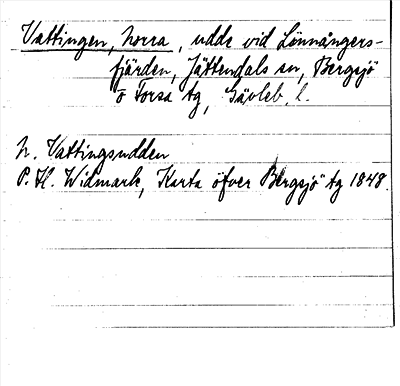 Vattingen, norra, udde vid Lönnångers-
fjärden, Jättendals sn, Bergsjö
o Forsa tg, Gävleb. l.
N. Vattingsudden
P. H. Widmark, Karta öfver Bergsjö tg 1848.